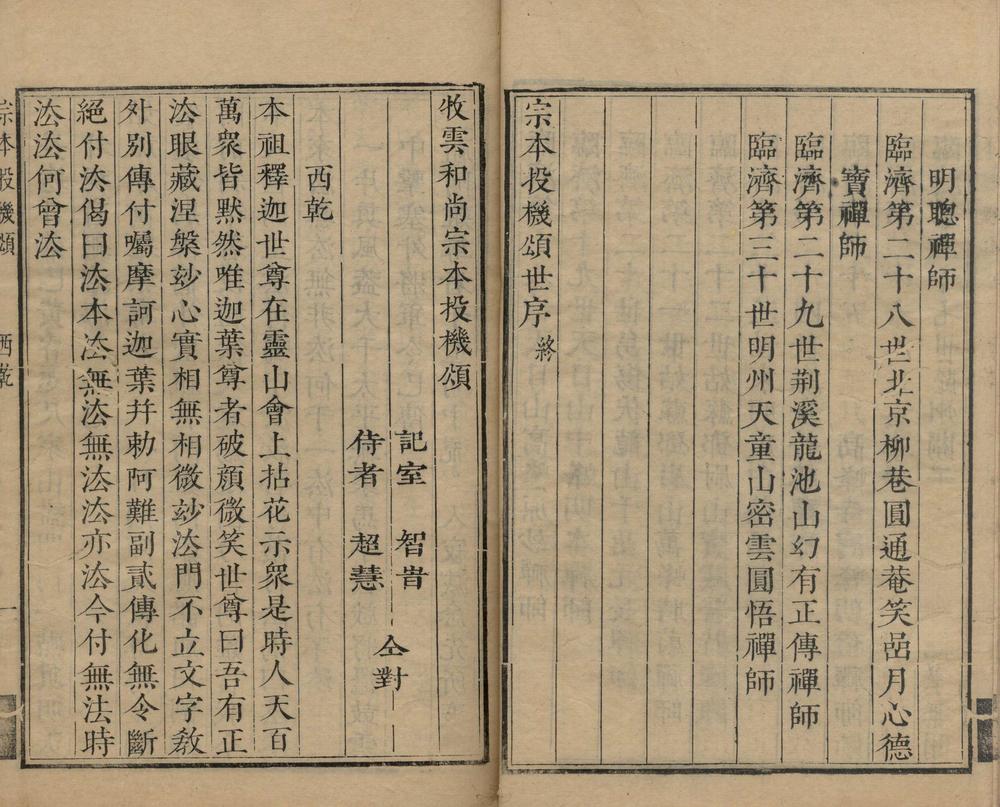 明聰禪師
臨濟第二十八世北京柳巷圓通菴笑嵒月心德
寶禪師
臨濟第二十九世荊溪龍池山幻有正傳禪師
臨濟第三十世明州天童山密雲圓悟禪師
宗本投機頌世序 終
牧雲和尚宗本投機頌
記室 智旹
侍者 超慧
仝對
西乾
本祖釋迦世尊在靈山會上拈花示衆是時人天百
萬衆皆默然唯迦葉尊者破顏微笑世尊曰吾有正
法眼藏涅槃玅心實相無相微玅法門不立文字敎
外別傳付囑摩訶迦葉幷勅阿難副貳傳化無令斷
絕付法偈曰法本法無法無法法亦法今付無法時
法法何曾法
宗本投機頌 西乾 一